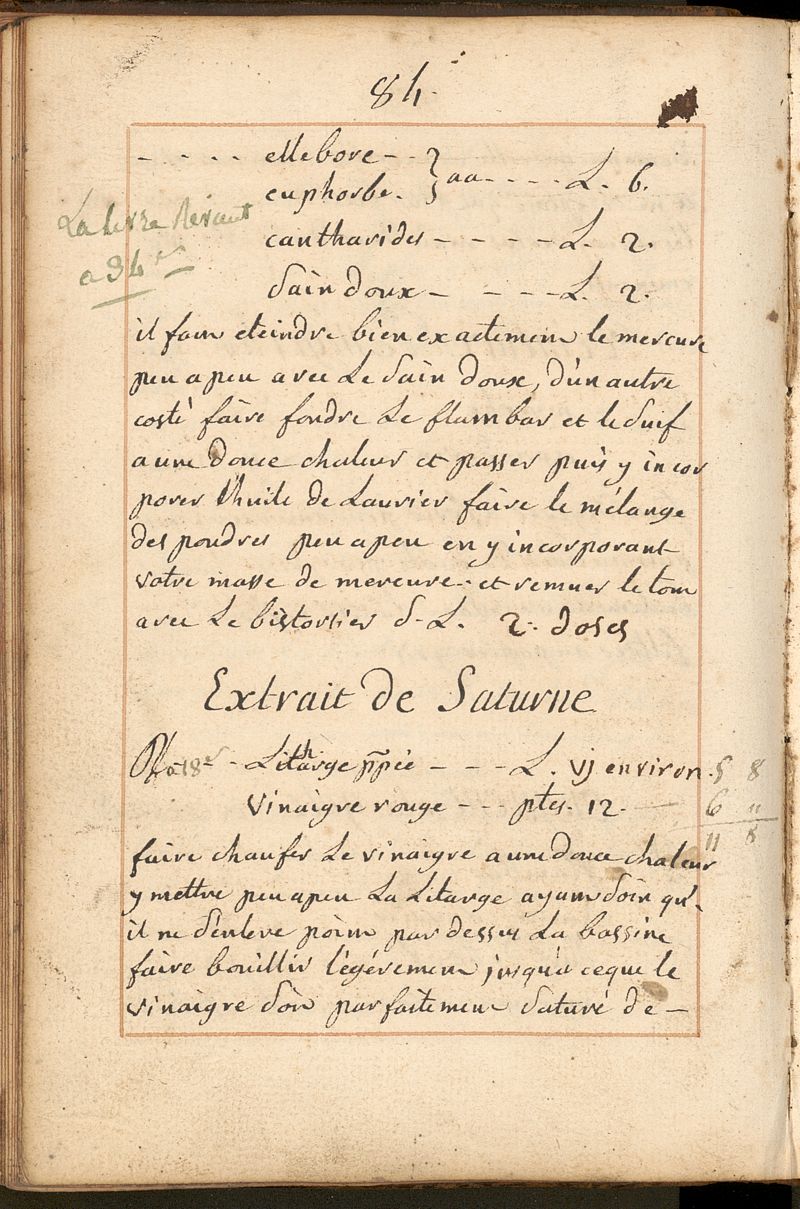 84.
- - - - ellebore - - } aa - - - - L. 6.
euphorbe.
cantharides - - - - L. 2.
Sain doux - - - - L. 2.
La livre Revient
a 34 s
il faut eteindre bien exactement le mercure
peu a peu avec Le Sain doux, d'un autre
costé faire fondre Le flambar et le Suif
a une douce chaleur et passer puis y incor
porer l'huile de Laurier faire le mélange
des poudres peu a peu en y incorporant
votre masse de mercure. et remuer le tout
avec Le bistortier d. L. 2. doses
Extrait de Saturne
a 18 s - Litharge ppée - - - L. vj environ. 5 8
vinaigre rouge - - - ptes. 12. — 6 "
11 8
faire chaufer Le vinaigre a une douce chaleur
y mettre peu a peu La Litarge ayant Soin qu'
il ne S'enleve point par dessus La bassine
faire bouillir légérement jusqu'a ceque le
vinaigre Soit parfaitement Saturé de —